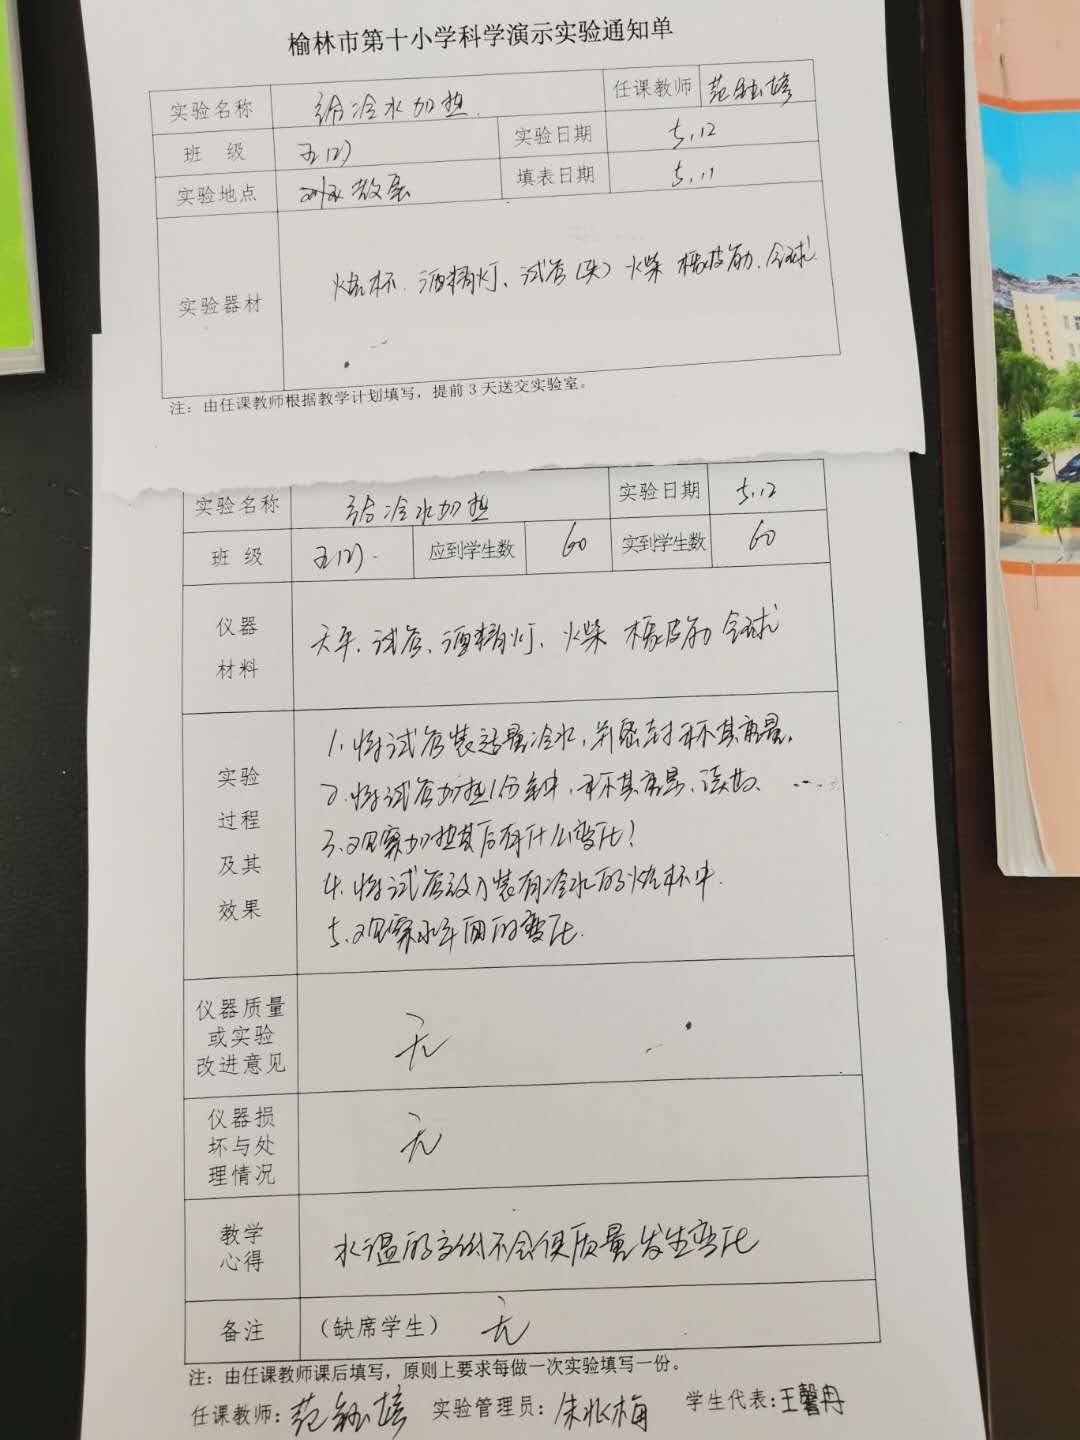 榆林市第十小学科学演示实验通知单
实验名称 给冷水加热. 任课教师 范钰婷
班 级 五(2) 实验日期 5.12
实验地点 教室 填表日期 5.11
实验器材 烧杯. 酒精灯、试管(夹) 火柴 橡皮筋、气球
注：由任课教师根据教学计划填写，提前3天送交实验室。
实验名称 给冷水加热 实验日期 5.12
班 级 五(2) 应到学生数 60 实到学生数 60
仪器材料 天平、试管、酒精灯、火柴 橡皮筋 气球
实验过程及其效果
1. 将试管装适量冷水，并密封称其质量.
2. 将试管加热1分钟，称其质量、读数.
3. 观察加热其后有什么变化？
4. 将试管放入装有冷水的烧杯中.
5. 观察水平面的变化.
仪器质量或实验改进意见 无
仪器损坏与处理情况 无
教学心得 水温的高低不会使质量发生变化
备注 （缺席学生） 无
注：由任课教师课后填写，原则上要求每做一次实验填写一份。
任课教师：范钰婷 实验管理员：朱兆梅 学生代表：王馨冉